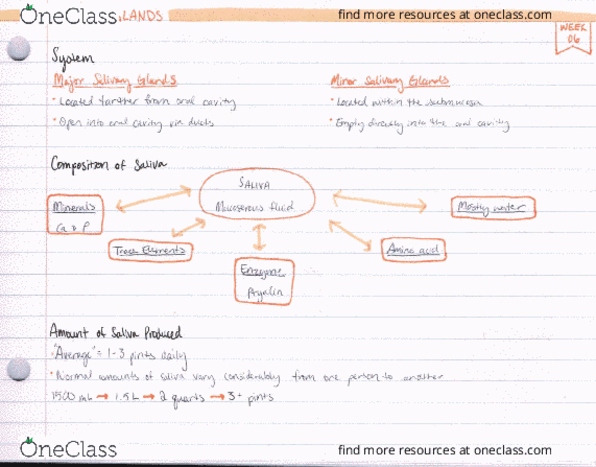 OneClass
find more resources at oneclass.com
LANDS
WEEK
06
System
Major Salivary Glands
Minor Salivary Glands
• Located farther from oral cavity
• Located within the submucosa
• Open into oral cavity via ducts
• Empty directly into the oral cavity
Composition of Saliva
SALIVA
Mucoserous fluid
Minerals
Ca & P
Mostly water
Trace Elements
Amino acid
Enzyme
Amount of Saliva Produced
"Average" = 1-3 pints daily
• Normal amounts of saliva vary considerably from one person to another
1500 mL → 1.5 L → 2 quarts → 3+ pints
OneClass
find more resources at oneclass.com